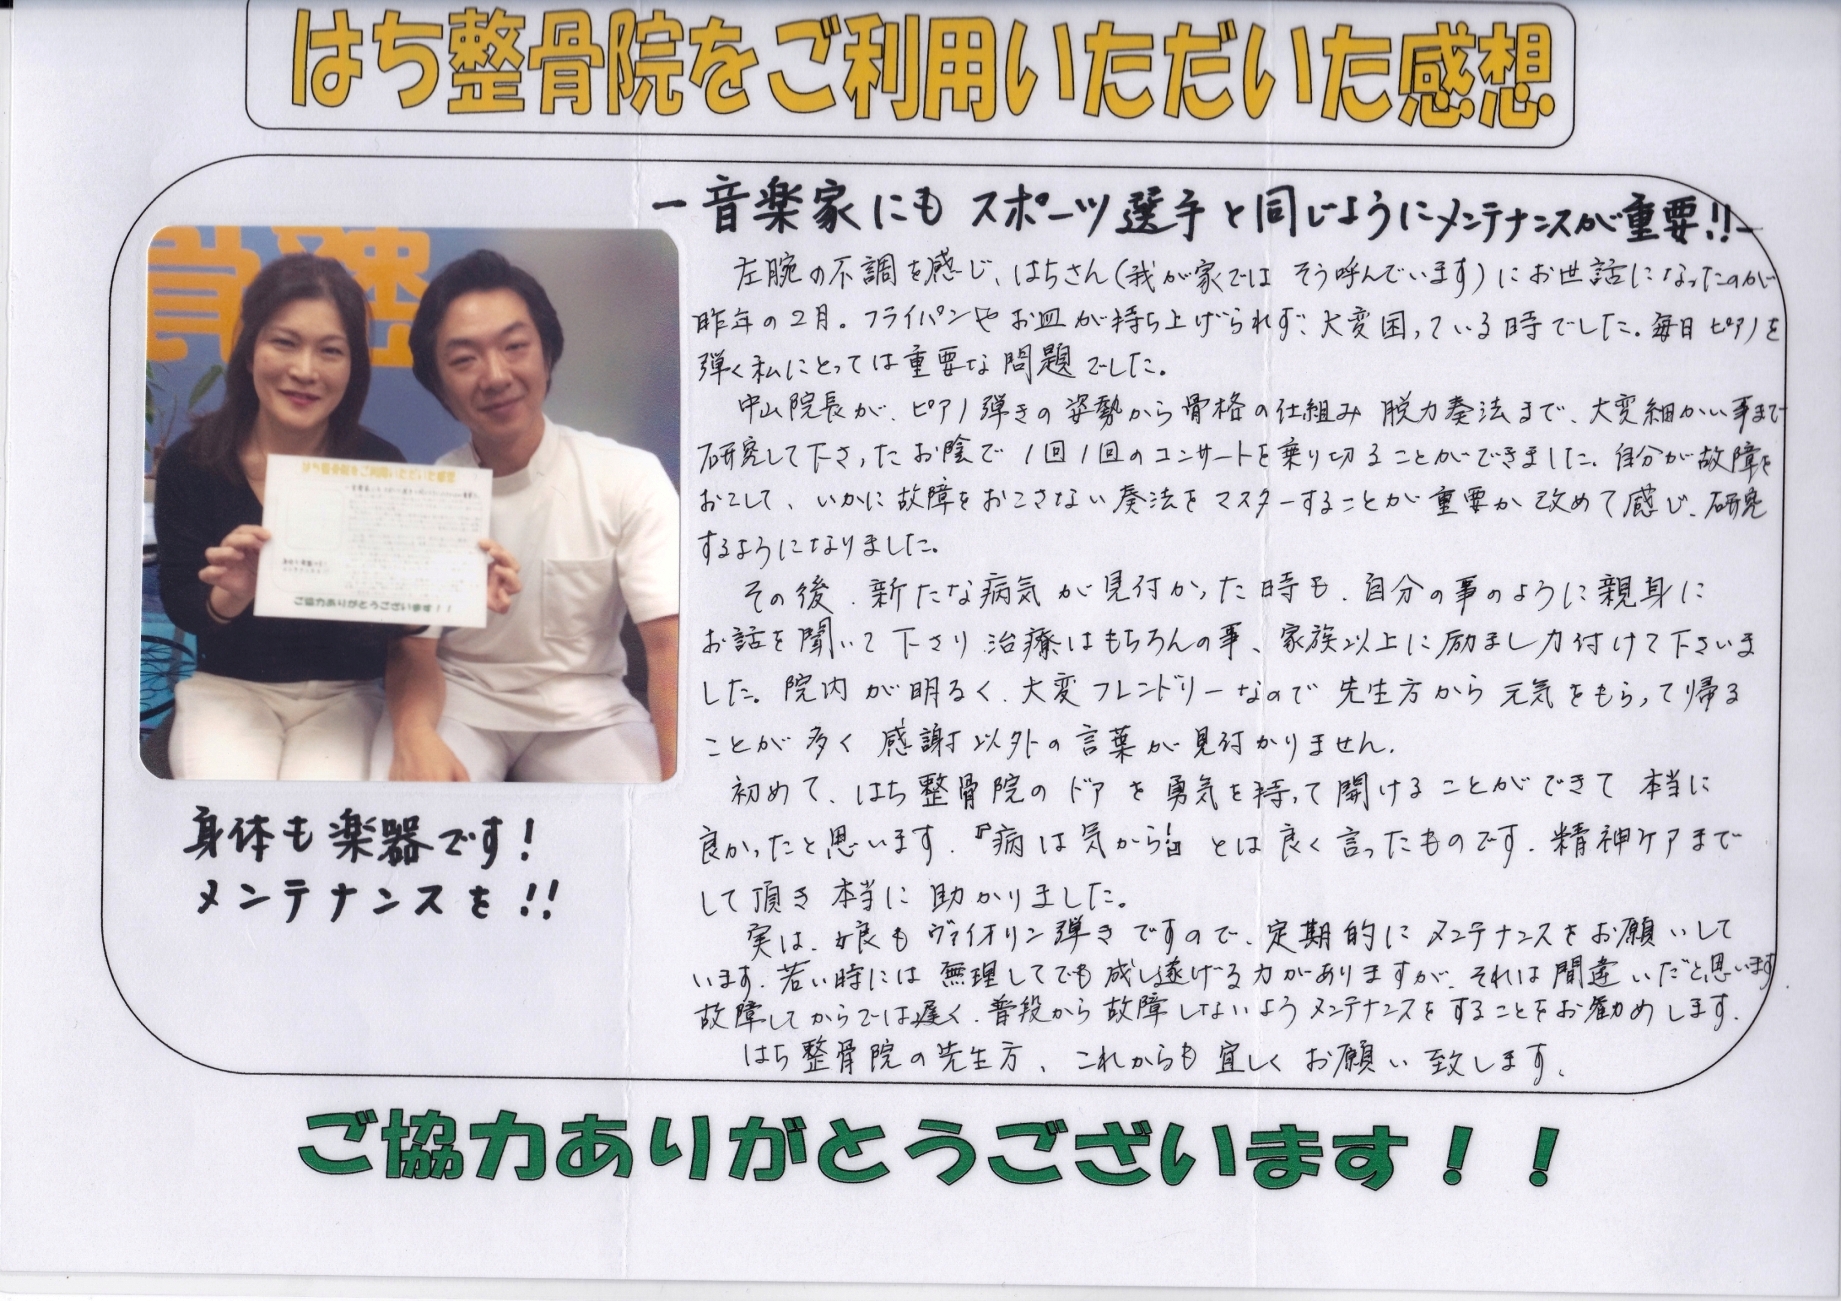 はち整骨院をご利用いただいた感想
－音楽家にもスポーツ選手と同じようにメンテナンスが重要!!－
左腕の不調を感じ、はちさん(我が家ではそう呼んでいます)にお世話になったのが
昨年の2月。フライパンやお皿が持ち上げられず、大変困っている時でした。毎日ピアノを
弾く私にとっては重要な問題でした。
中山院長が、ピアノ弾きの姿勢から骨格の仕組み 脱力奏法まで、大変細かい事まで
研究して下さったお陰で 1回1回のコンサートを乗り切ることができました。自分が故障を
おこして、いかに故障をおこさない奏法をマスターすることが重要か改めて感じ、研究
するようになりました。
その後、新たな病気が見付かった時も、自分の事のように親身に
お話を聞いて下さり 治療はもちろんの事、家族以上に励まし力付けて下さいま
した。院内が明るく、大変フレンドリーなので先生方から元気をもらって帰る
ことが多く 感謝以外の言葉が見付かりません。
初めて、はち整骨院のドアを勇気を持って開けることができて 本当に
良かったと思います。『病は気から』とは良く言ったものです。精神ケアまで
して頂き本当に助かりました。
実は、娘もヴァイオリン弾きですので、定期的にメンテナンスをお願いして
います。若い時には無理してでも成し遂げる力がありますが、それは間違いだと思います
故障してからでは遅く、普段から故障しないようメンテナンスをすることをお勧めします。
はち整骨院の先生方、これからも宜しくお願い致します。
身体も楽器です!
メンテナンスを!!
ご協力ありがとうございます！！